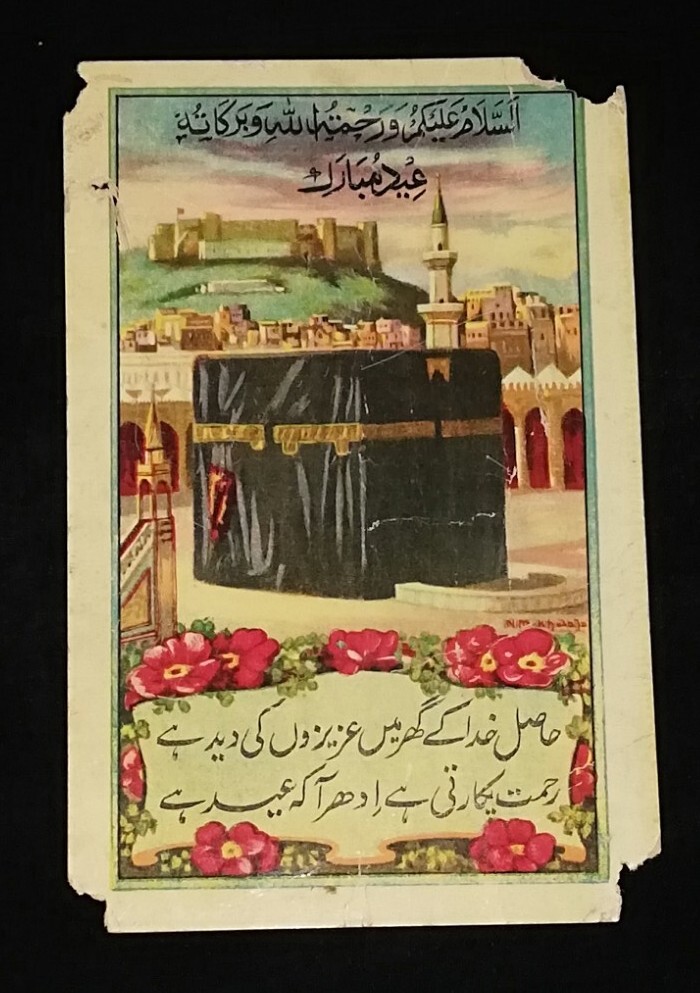 اَلسَّلَامُ عَلَيْكُمْ وَرَحْمَةُ اللّٰهِ وَبَرَكَاتُهُ
عِید مُبَارَک
حاصل خدا کے گھر میں عزیزوں کی دید ہے
رحمت پکارتی ہے اِدھر آ کہ عید ہے